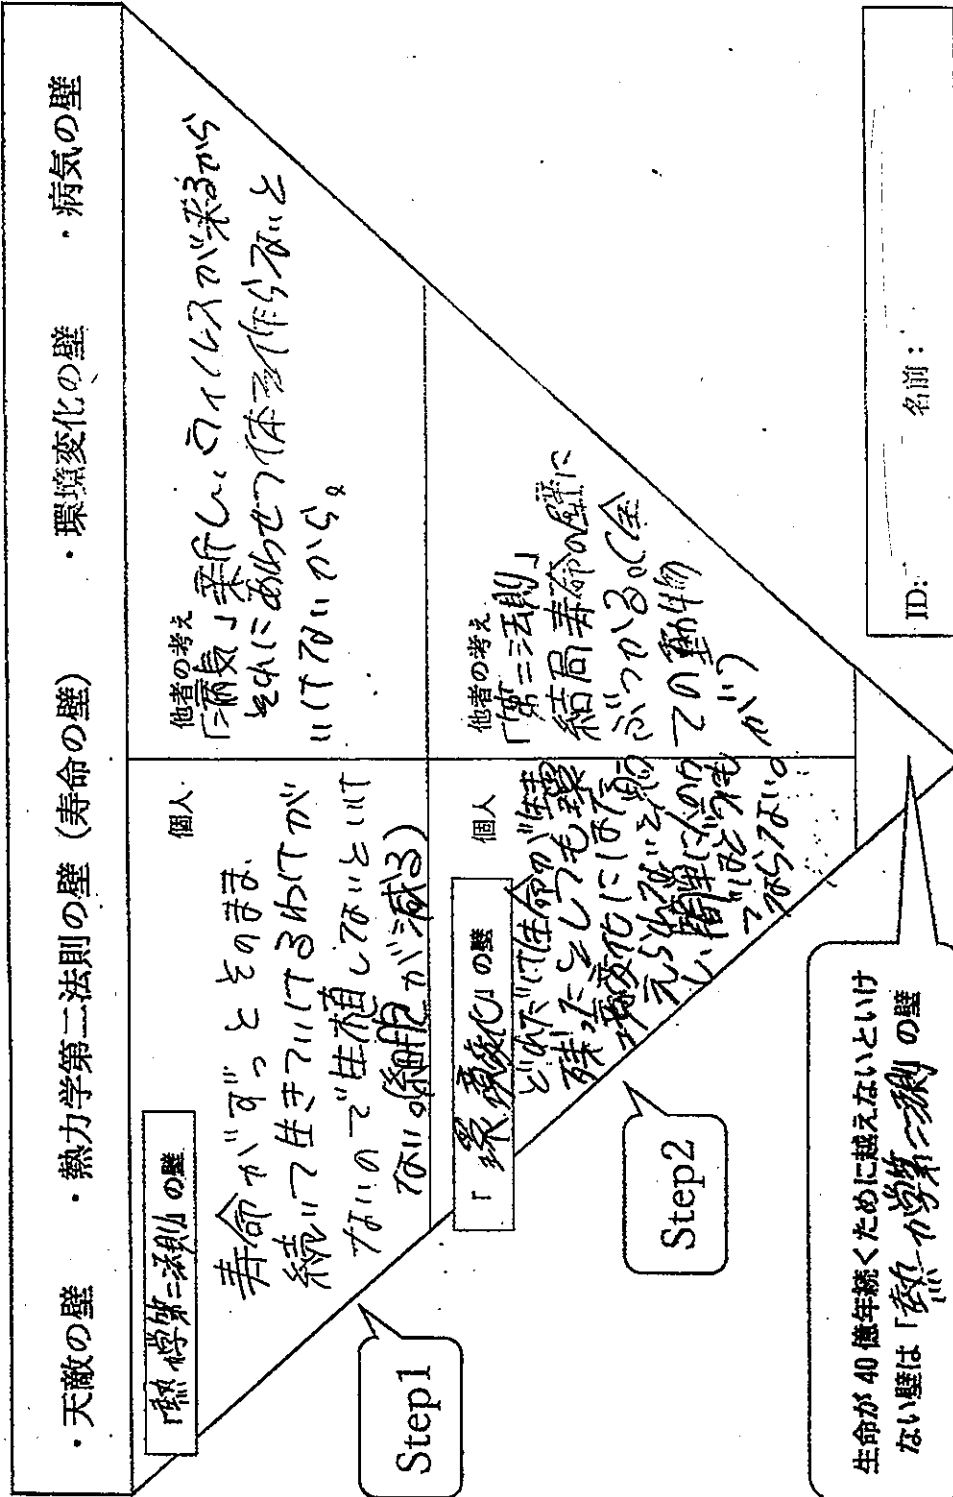 ・天敵の壁 ・熱力学第二法則の壁（寿命の壁） ・環境変化の壁 ・病気の壁
「熱力学第二法則」の壁
個人
寿命がずっとそのまま
続いて生きていけるわけが
ないので生殖しないといけ
ない。(細胞が減る)
他者の考え
「病気」新しいウイルスが来るから
それにあわせつ体を作らないと
いけないから。
Step1
「環境変化」の壁
個人
どれだけ生命が生き
残ったとしても環
境変化には
えられないと思う
し、簡単に
ばどうにも
ならない。
他者の考え
「第二法則」
結局寿命の壁に
ぶつかる。(全
ての動物
が)
Step2
生命が 40 億年続くために越えないといけ
ない壁は「熱力学第二法則」の壁
ID: 名前：